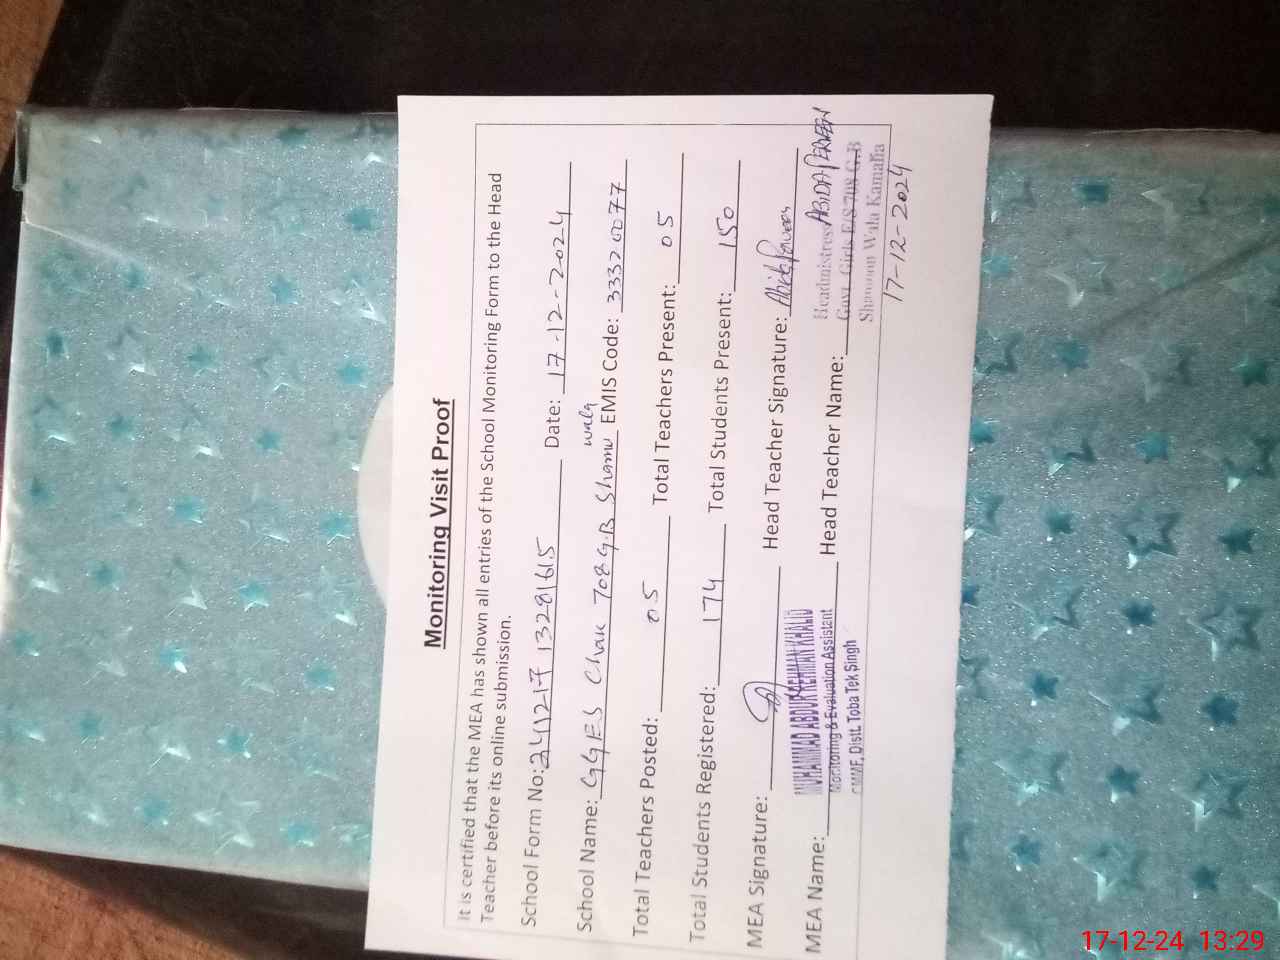 Monitoring Visit Proof
It is certified that the MEA has shown all entries of the School Monitoring Form to the Head
Teacher before its online submission.
School Form No: 241217 13281615 Date: 17-12-2024
School Name: GGES Chak 708 G.B Shamu wala EMIS Code: 33320077
Total Teachers Posted: 05 Total Teachers Present: 05
Total Students Registered: 174 Total Students Present: 150
MEA Signature: Head Teacher Signature: Abida Parveen
MUHAMMAD ABDUR REHMAN KHALID
Monitoring & Evaluation Assistant
CMMF, Distt. Toba Tek Singh
MEA Name: Head Teacher Name: ABIDA PERVEEN
Headmistress
Govt. Girls E/S 708 G.B
Shamoon Wala Kamalia
17-12-2024
17-12-24 13:29